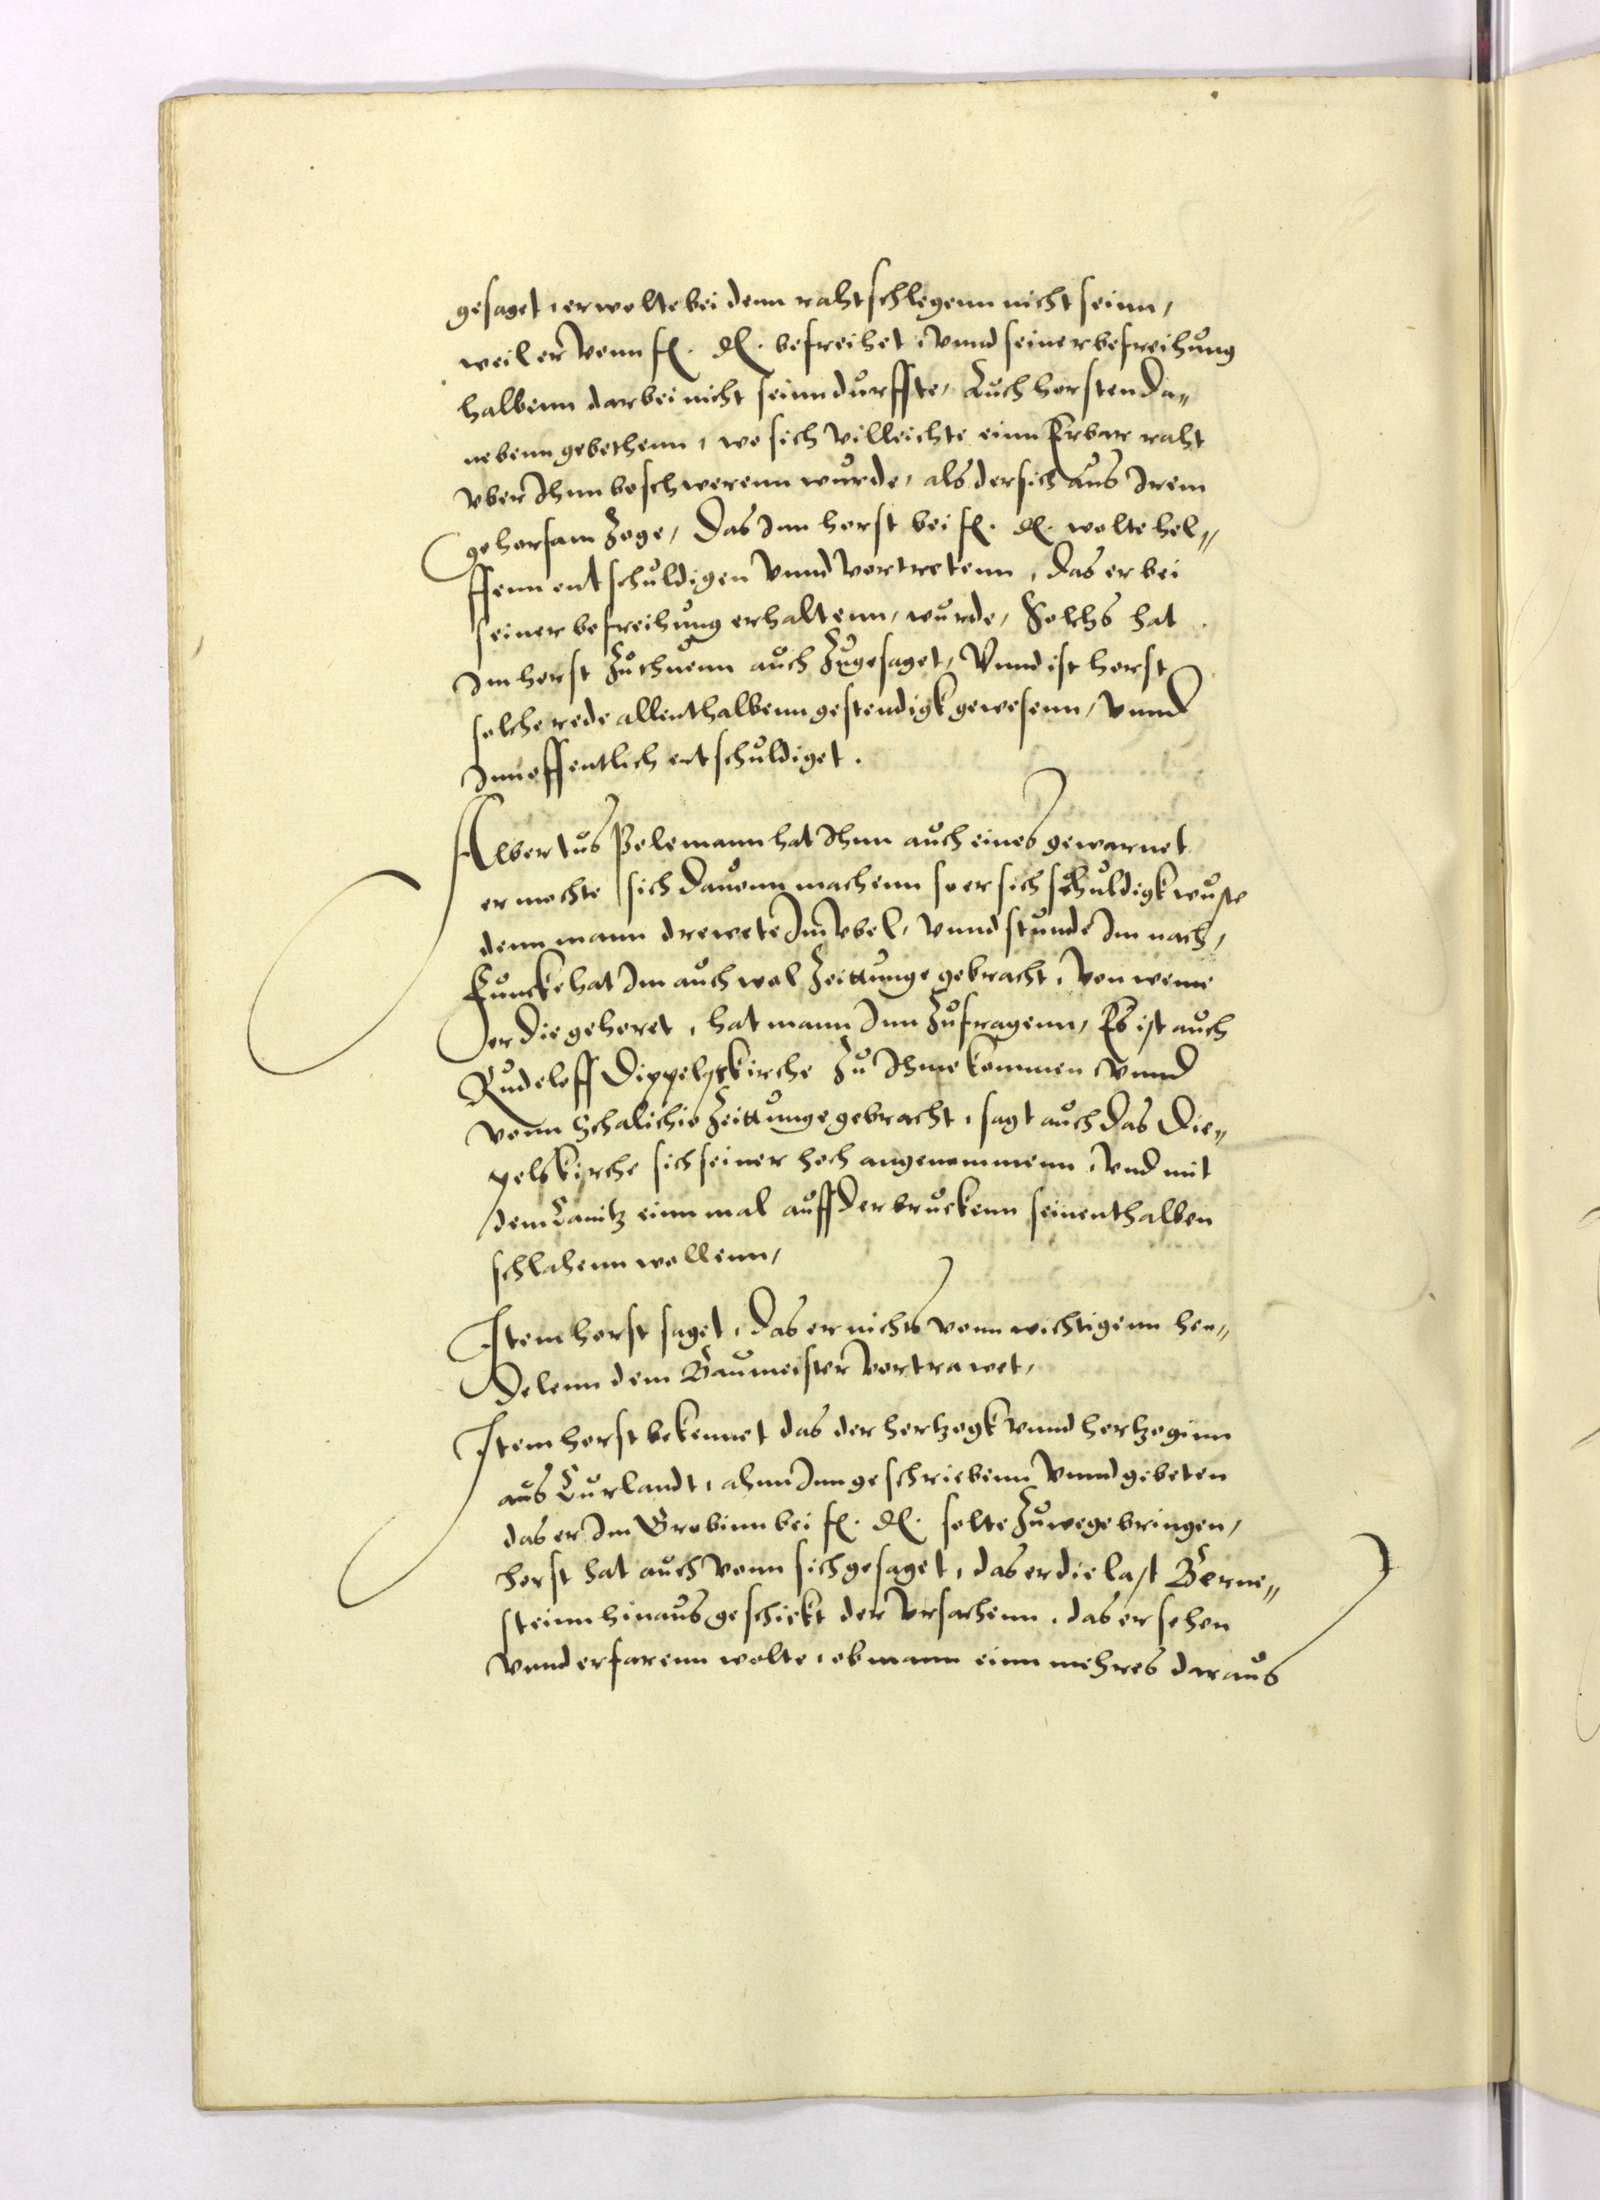 gesaget, er wolte bei denn rahtschlegenn nicht seinn,
weil er vonn f. d. befreihet, vnnd seiner befreihung
halbenn darbei nicht seinn durffte, Auch horsten da„
nebenn gebethenn, wo sich villeichte einn Erbar raht
vber Ihnn beschwerenn wurde, als der sich aus Irem
gehorsam zoge, Das Inn horst bei f. d. wolte hel„
ffenn entschuldigen vnnd vortretenn, das er bei
seiner befreihung erhaltenn, wurde, Solchs hat
Im horst zu thuenn auch zugesaget, Vnnd ist horst
solche rede allenthalbenn gestendigk gewesenn, vnnd
Inn offentlich entschuldiget.
Albertus Polemann hat Ihnn auch eines gewarnet
er mochte sich dauonn machenn so er sich schuldigk wuste
denn mann drewete Im vbel, vnnd stunde Im nach,
Funcke hat Im auch wol zeittunge gebracht, von weme
er die gehoret, hat mann Inn zufragenn, Es ist auch
Rudeloff Dippelskirche zu Ihme kommen vnnd
vonn Schalichio zeittunge gebracht, sagt auch das Die„
pelskirche sich seiner hoch angenommenn, vnd mit
dem Canitz einn mal auff der bruckenn seinenthalben
schlahenn wollenn,
Item horst saget, das er nichts vonn wichtigenn hen„
delenn dem Baumeister vortrawet,
Item horst bekennet das der hertzogk vnnd hertzoginn
aus Curlandt, ahnn Inn geschriebenn vnnd gebeten
das er Im Grobinn bei f. d. solte zuwege bringen,
horst hat auch vonn sich gesaget, das er die last Berne„
steinn hinaus geschickt der vrsachenn, das er sehen
vnnd erfarenn wolte, ob mann einn mehres daraus